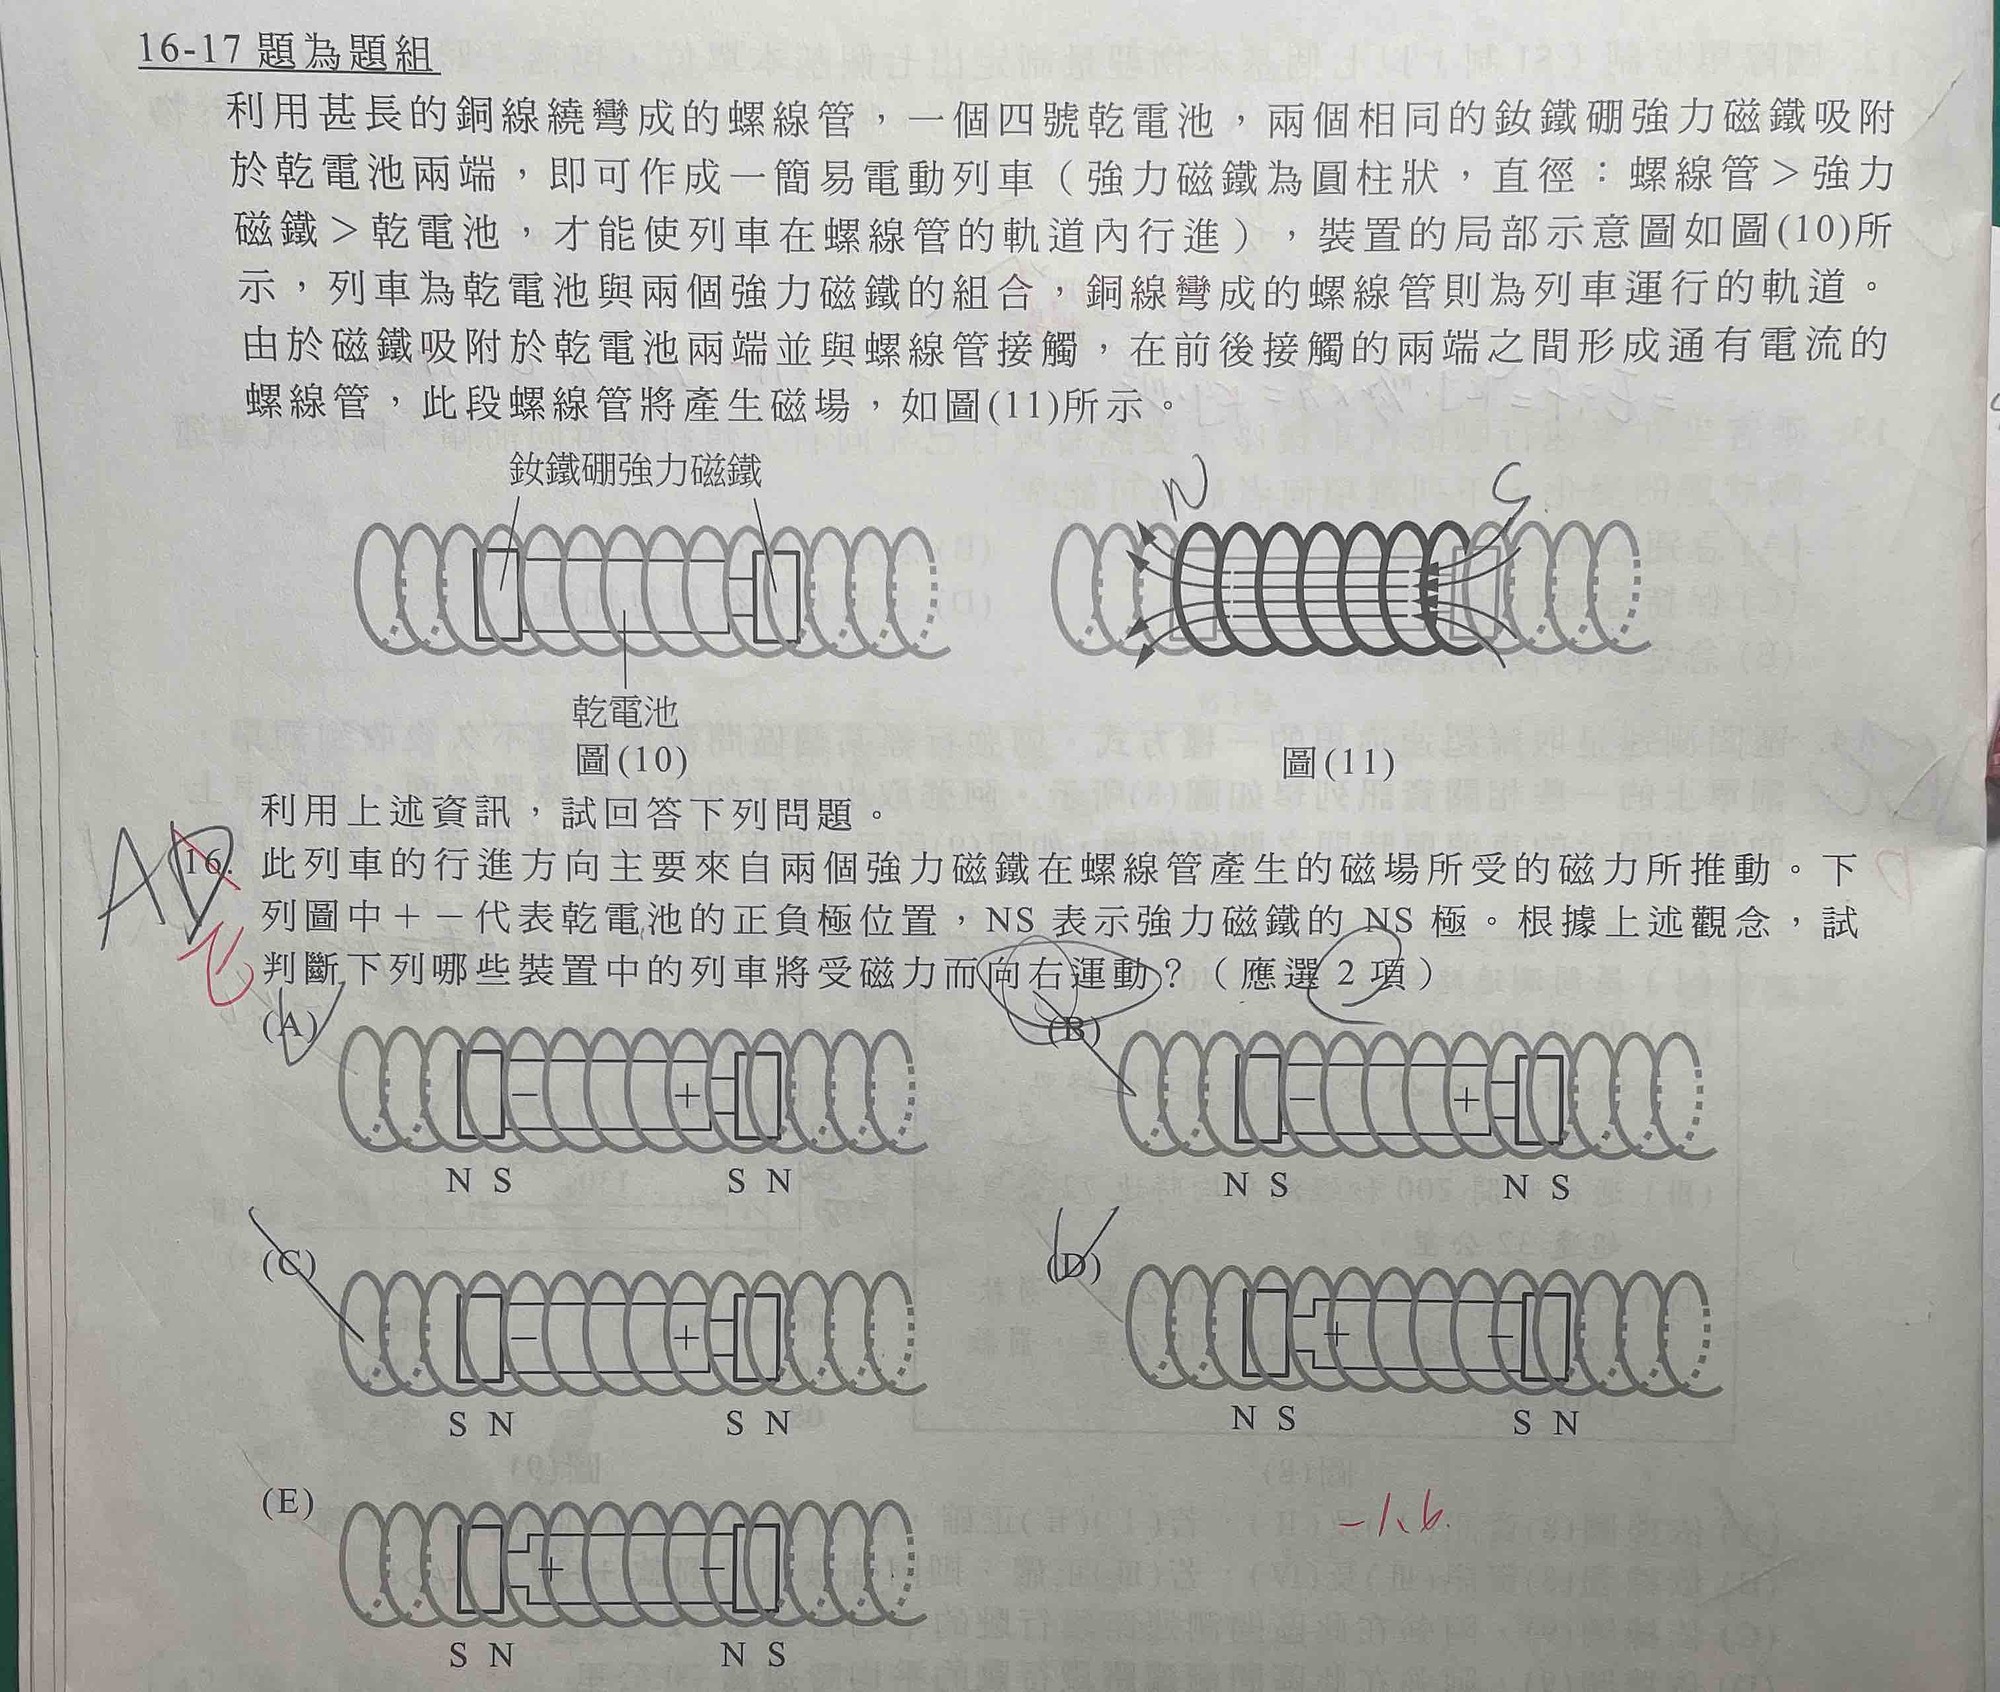 16-17 題為題組
利用甚長的銅線繞彎成的螺線管，一個四號乾電池，兩個相同的釹鐵硼強力磁鐵吸附
於乾電池兩端，即可作成一簡易電動列車（強力磁鐵為圓柱狀，直徑：螺線管＞強力
磁鐵＞乾電池，才能使列車在螺線管的軌道內行進），裝置的局部示意圖如圖(10)所
示，列車為乾電池與兩個強力磁鐵的組合，銅線彎成的螺線管則為列車運行的軌道。
由於磁鐵吸附於乾電池兩端並與螺線管接觸，在前後接觸的兩端之間形成通有電流的
螺線管，此段螺線管將產生磁場，如圖(11)所示。
釹鐵硼強力磁鐵
N S
乾電池
圖(10) 圖(11)
利用上述資訊，試回答下列問題。
AD
16. 此列車的行進方向主要來自兩個強力磁鐵在螺線管產生的磁場所受的磁力所推動。下
列圖中＋－代表乾電池的正負極位置，NS 表示強力磁鐵的 NS 極。根據上述觀念，試
判斷下列哪些裝置中的列車將受磁力而向右運動？（應選 2 項）
E
(A) (B)
－ ＋ － ＋
N S S N N S N S
(C) (D)
－ ＋ ＋ －
S N S N N S S N
(E)
＋ －
S N N S
-1.6